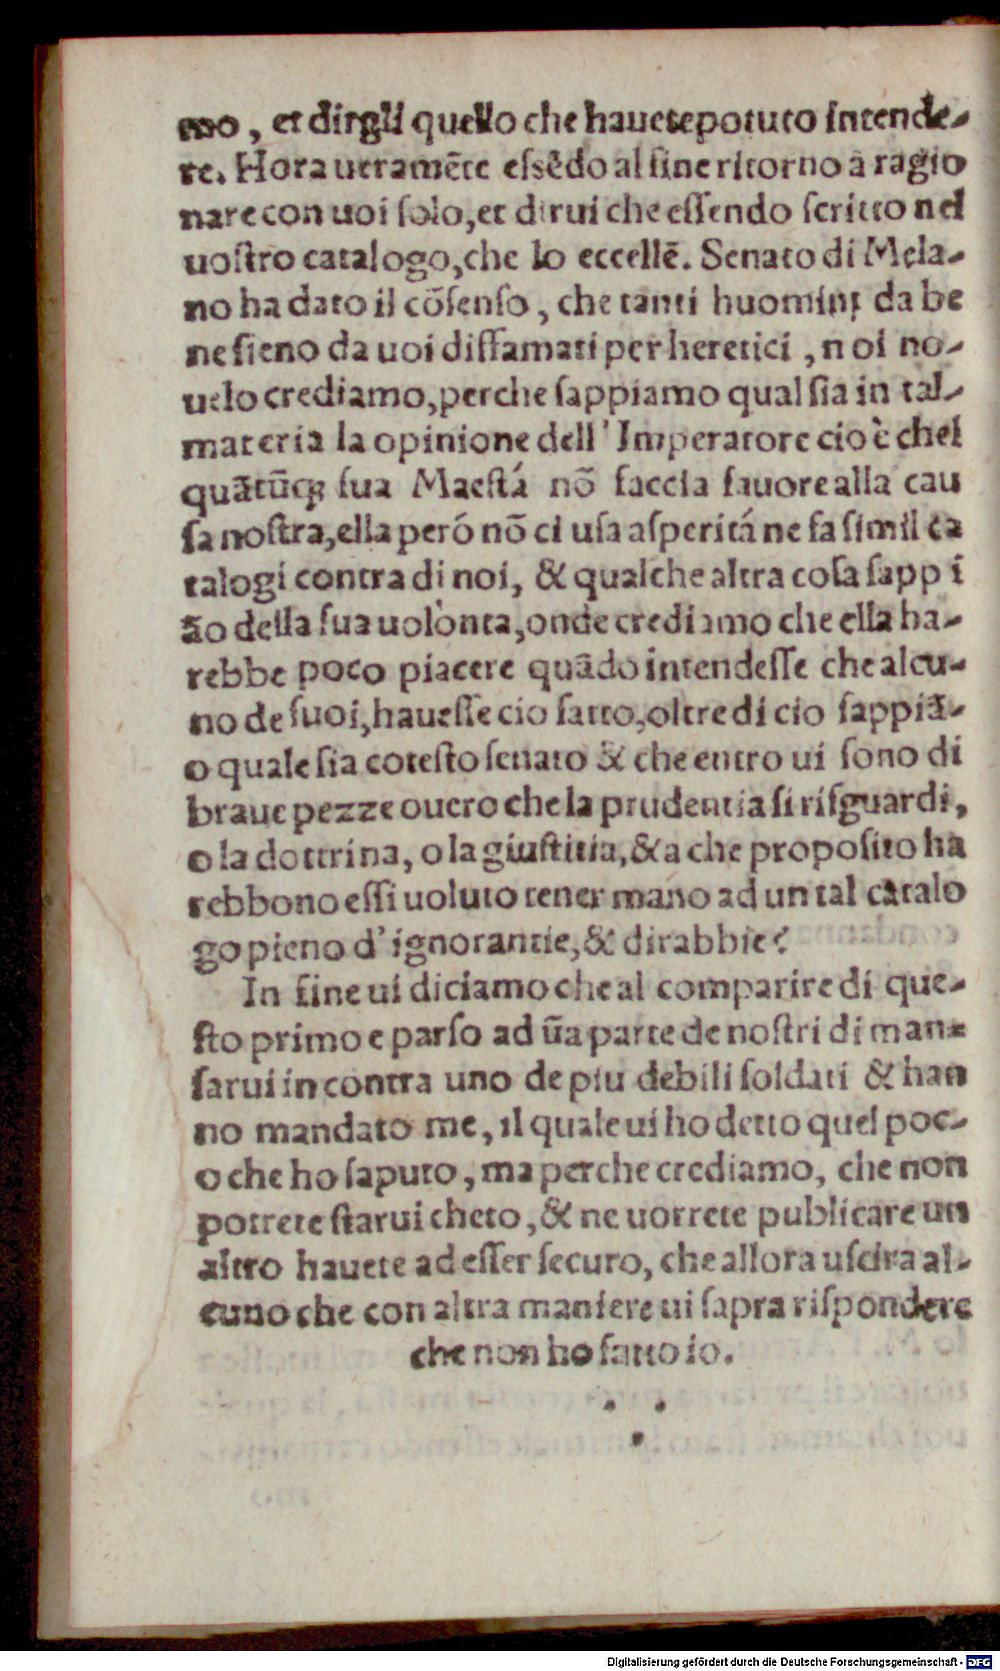 mo, et dirgli quello che havete potuto intende-
re. Hora veramẽte essẽdo al fine ritorno a ragio
nare con uoi solo, et dirui che essendo scritto nel
uostro catalogo, che lo eccellẽ. Senato di Mela-
no ha dato il cõsenso, che tanti huomini da be
ne sieno da uoi diffamati per heretici, noi no-
uelo crediamo, perche sappiamo qual sia in tal-
materia la opinione dell' Imperatore cio è chel
quãtũq; sua Maestá nõ faccia fauore alla cau
sa nostra, ella peró nõ ci usa asperitá ne fa simil ca
talogi contra di noi, & qualche altra cosa sapp i
ão della sua uolonta, onde crediamo che ella ha-
rebbe poco piacere quãdo intendesse che alcu-
no de suoi, hauesse cio fatto, oltre di cio sappiã-
o quale sia cotesto senato & che entro ui sono di
braue pezze ouero che la prudentia si risguardi,
o la dottrina, o la giustitia, & a che proposito ha
rebbono essi uoluto tener mano ad un tal catalo
go pieno d' ignorantie, & dirabbie?
In fine ui diciamo che al comparire di que-
sto primo e parso ad ũa parte de nostri di man-
sarui in contra uno de piu debili soldati & han
no mandato me, il quale ui ho detto quel poc-
o che ho saputo, ma perche crediamo, che non
potrete starui cheto, & ne uorrete publicare un
altro hauete ad esser securo, che allora uscira al-
cuno che con altra maniere ui sapra rispondere
che non ho fatto io.
Digitalisierung gefördert durch die Deutsche Forschungsgemeinschaft - DFG